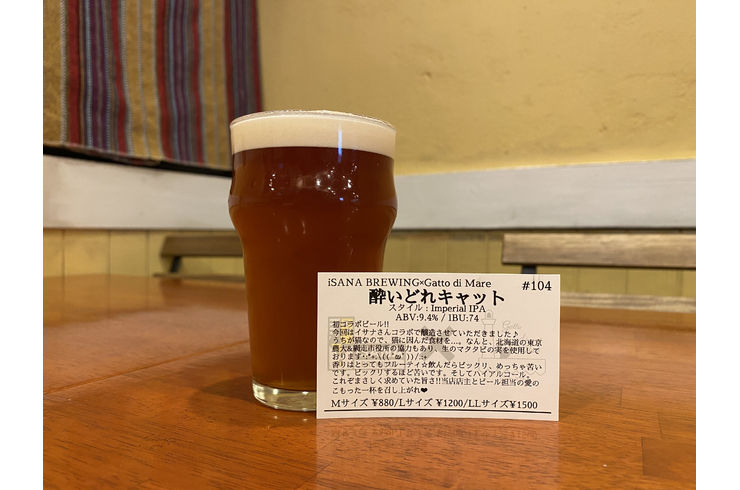 iSANA BREWING×Gatto di Mare #104
酔いどれキャット
スタイル : Imperial IPA
ABV:9.4% / IBU:74
初コラボビール!!
今回はイサナさんコラボで醸造させていただきました♪
うちが猫なので、猫に因んだ食材を…。なんと、北海道の東京
農大&網走市役所の協力もあり、生のマタタビの実を使用して
おります
香りはとってもフルーティ☆飲んだらビックリ、めっちゃ苦い
です。ビックリするほど苦いです。そしてハイアルコール。
これぞまさしく求めていた旨さ!!当店店主とビール担当の愛の
こもった一杯を召し上がれ❤
Mサイズ ¥880/Lサイズ ¥1200/LLサイズ¥1500